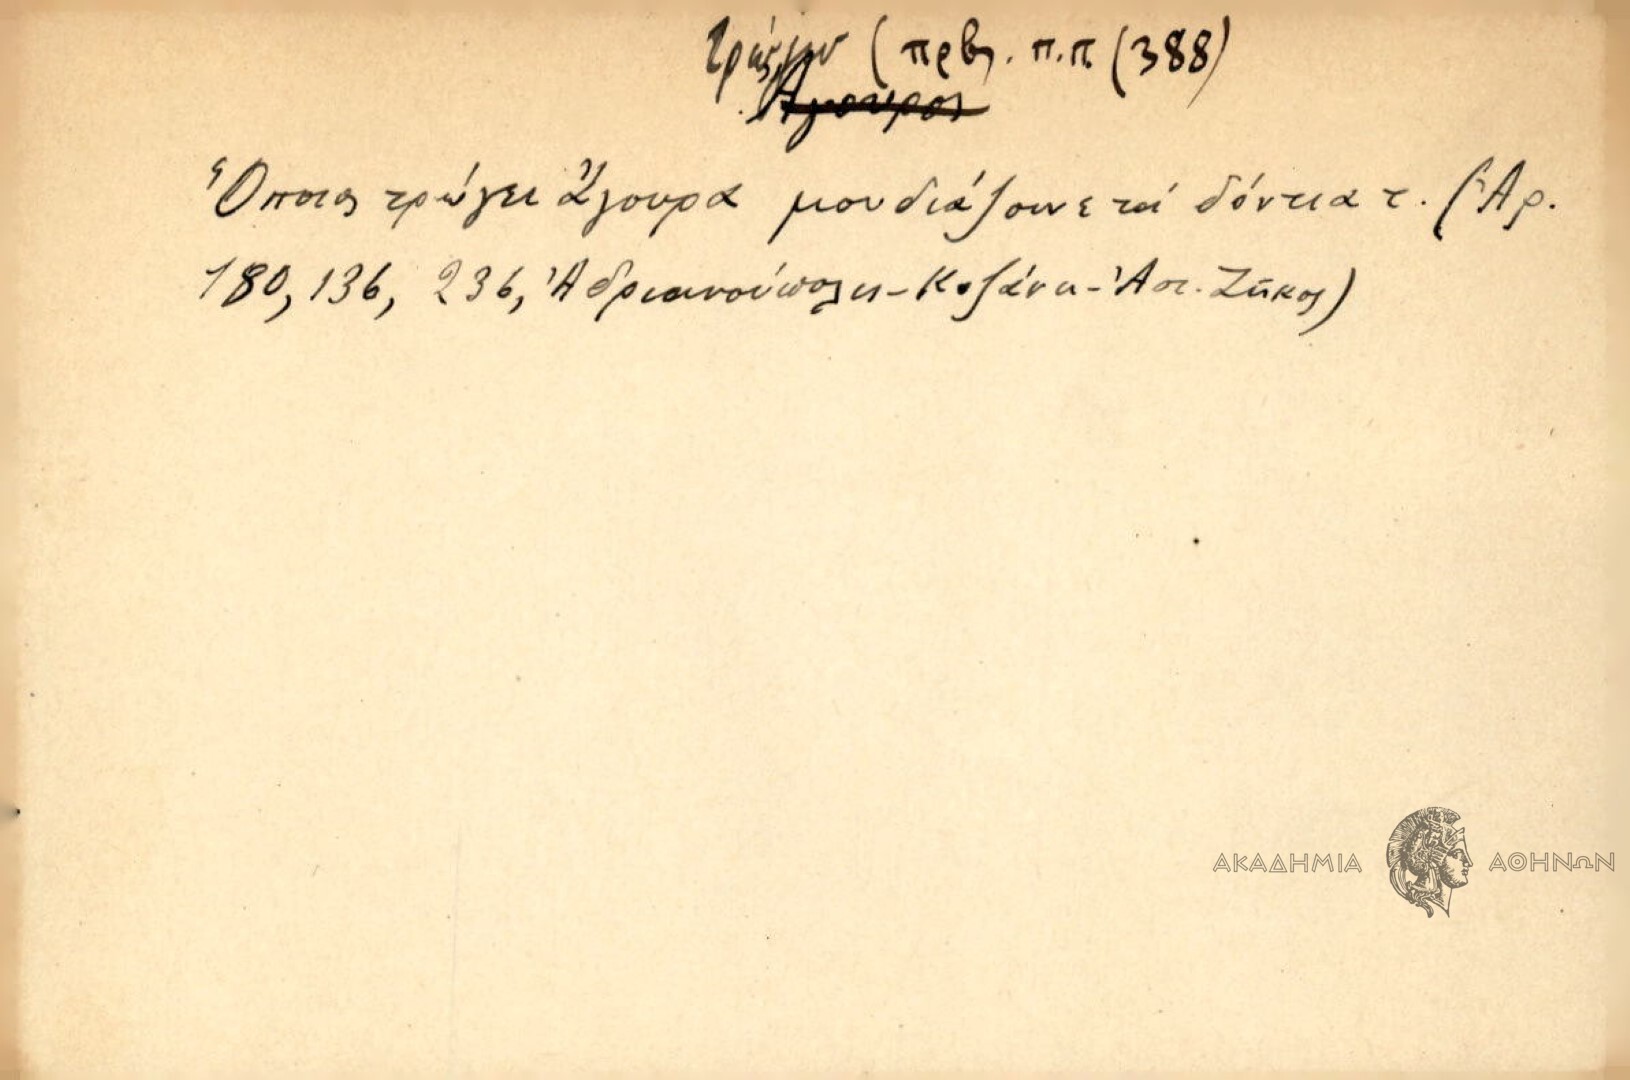 τρώγων (πρβ. π.π. (388)
Ἄγουρος
Ὅποιος τρώγει ἄγουρα μουδιάζουνε τά δόντια τ. (Ἀρ.
180, 136, 236, Ἀδριανούπολις - Κοζάνη - Ἀστ. Ζῆκος)
ΑΚΑΔΗΜΙΑ ΑΘΗΝΩΝ